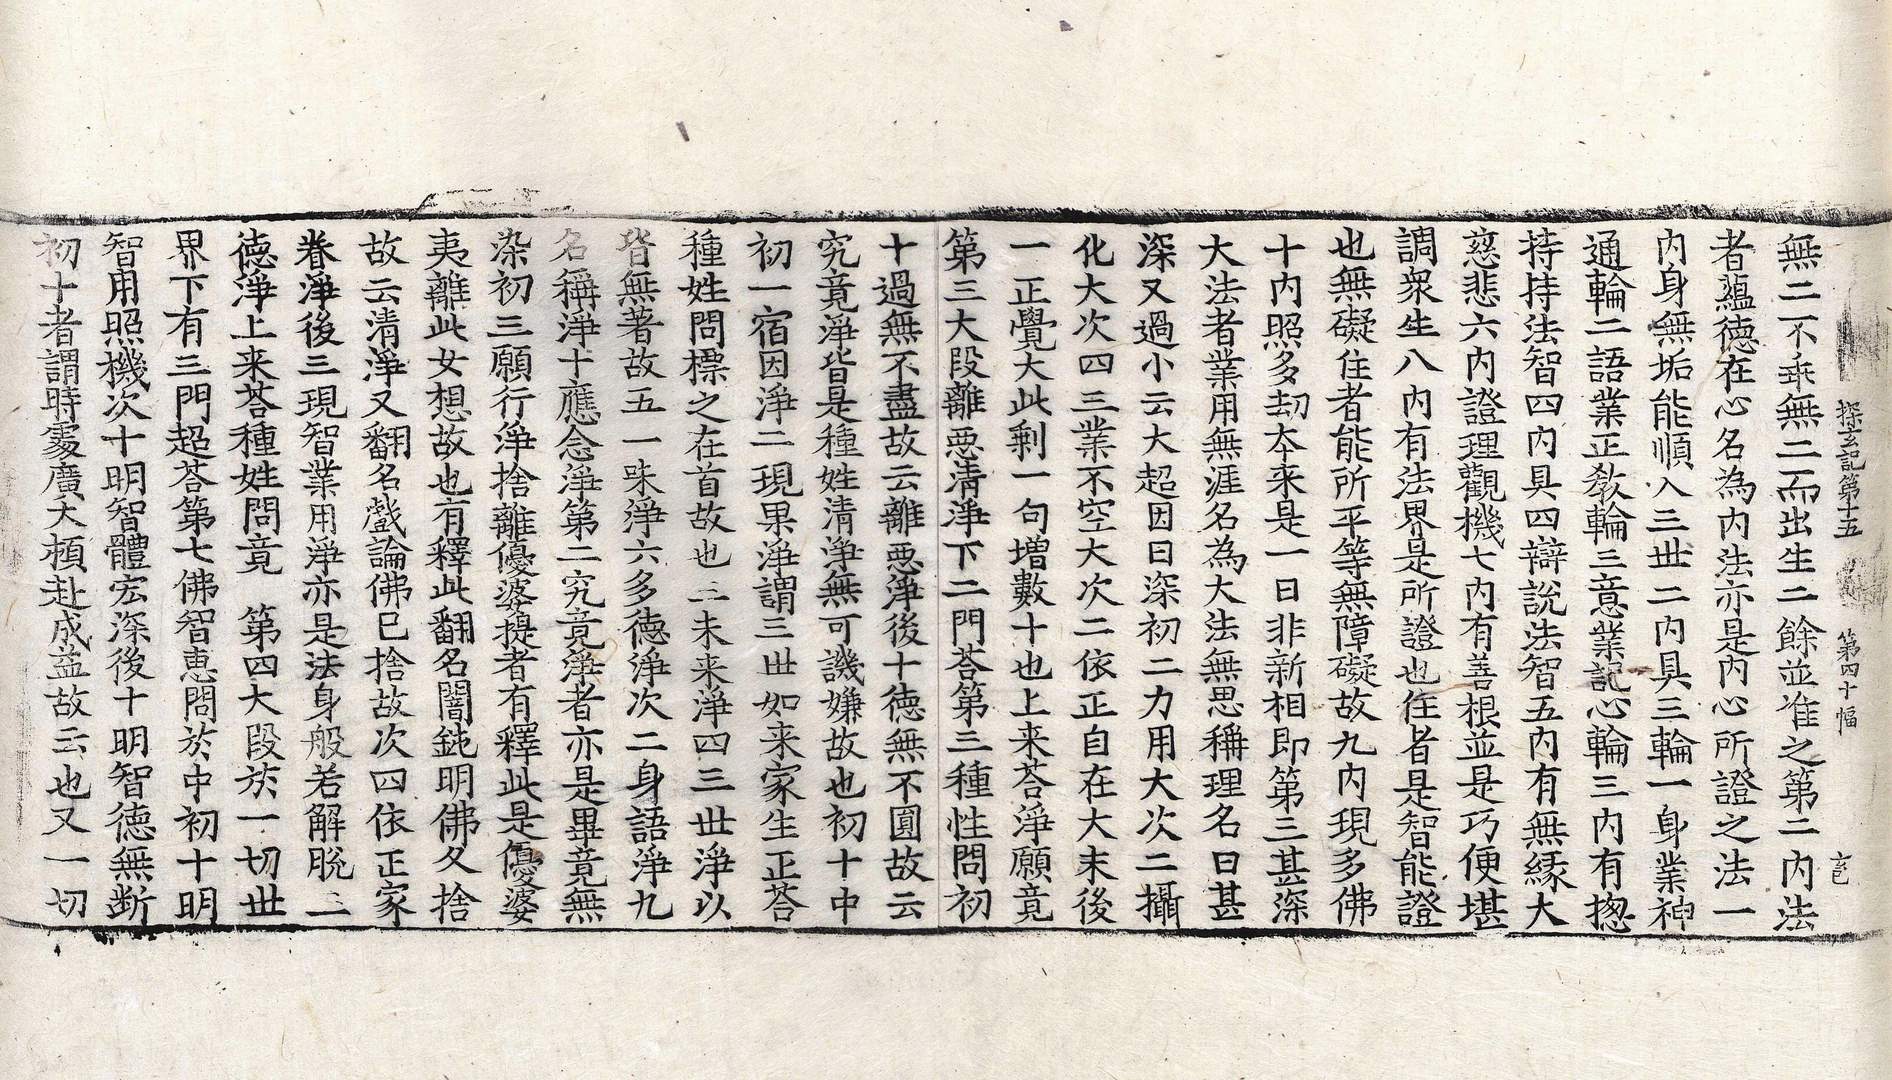 探玄記第十五 第四十幅 玄
無二不乖無二而出生二餘並准之第二內法
者蘊德在心名為內法亦是內心所證之法一
內身無垢能順入三世二內具三輪一身業神
通輪二語業正教輪三意業記心輪三內有揔
持持法智四內具四辯說法智五內有無緣大
慈悲六內證理觀機七內有善根並是巧便堪
調衆生八內有法界是所證也住者是智能證
也無礙住者能所平等無障礙故九內現多佛
十內照多劫本来是一日非新相即第三甚深
大法者業用無涯名為大法無思稱理名曰甚
深又過小云大超因曰深初二力用大次二攝
化大次四三業不空大次二依正自在大末後
一正覺大此剩一句增數十也上来荅淨願竟
第三大段離惡清淨下二門荅第三種性問初
十過無不盡故云離惡淨後十德無不圓故云
究竟淨皆是種姓清淨無可譏嫌故也初十中
初一宿因淨二現果淨謂三世如来家生正荅
種姓問標之在首故也三未来淨四三世淨以
皆無著故五一味淨六多德淨次二身語淨九
名稱淨十應念淨第二究竟淨者亦是畢竟無
染初三願行淨捨離優婆提者有釋此是優婆
夷離此女想故也有釋此翻名闇鈍明佛久捨
故云清淨又翻名戲論佛已捨故次四依正家
眷淨後三現智業用淨亦是法身般若解脫二
德淨上来荅種姓問竟 第四大段於一切世
界下有三門超荅第七佛智惠問於中初十明
智用照機次十明智體宏深後十明智德無斷
初十者謂時處廣大頓赴成益故云也又一切